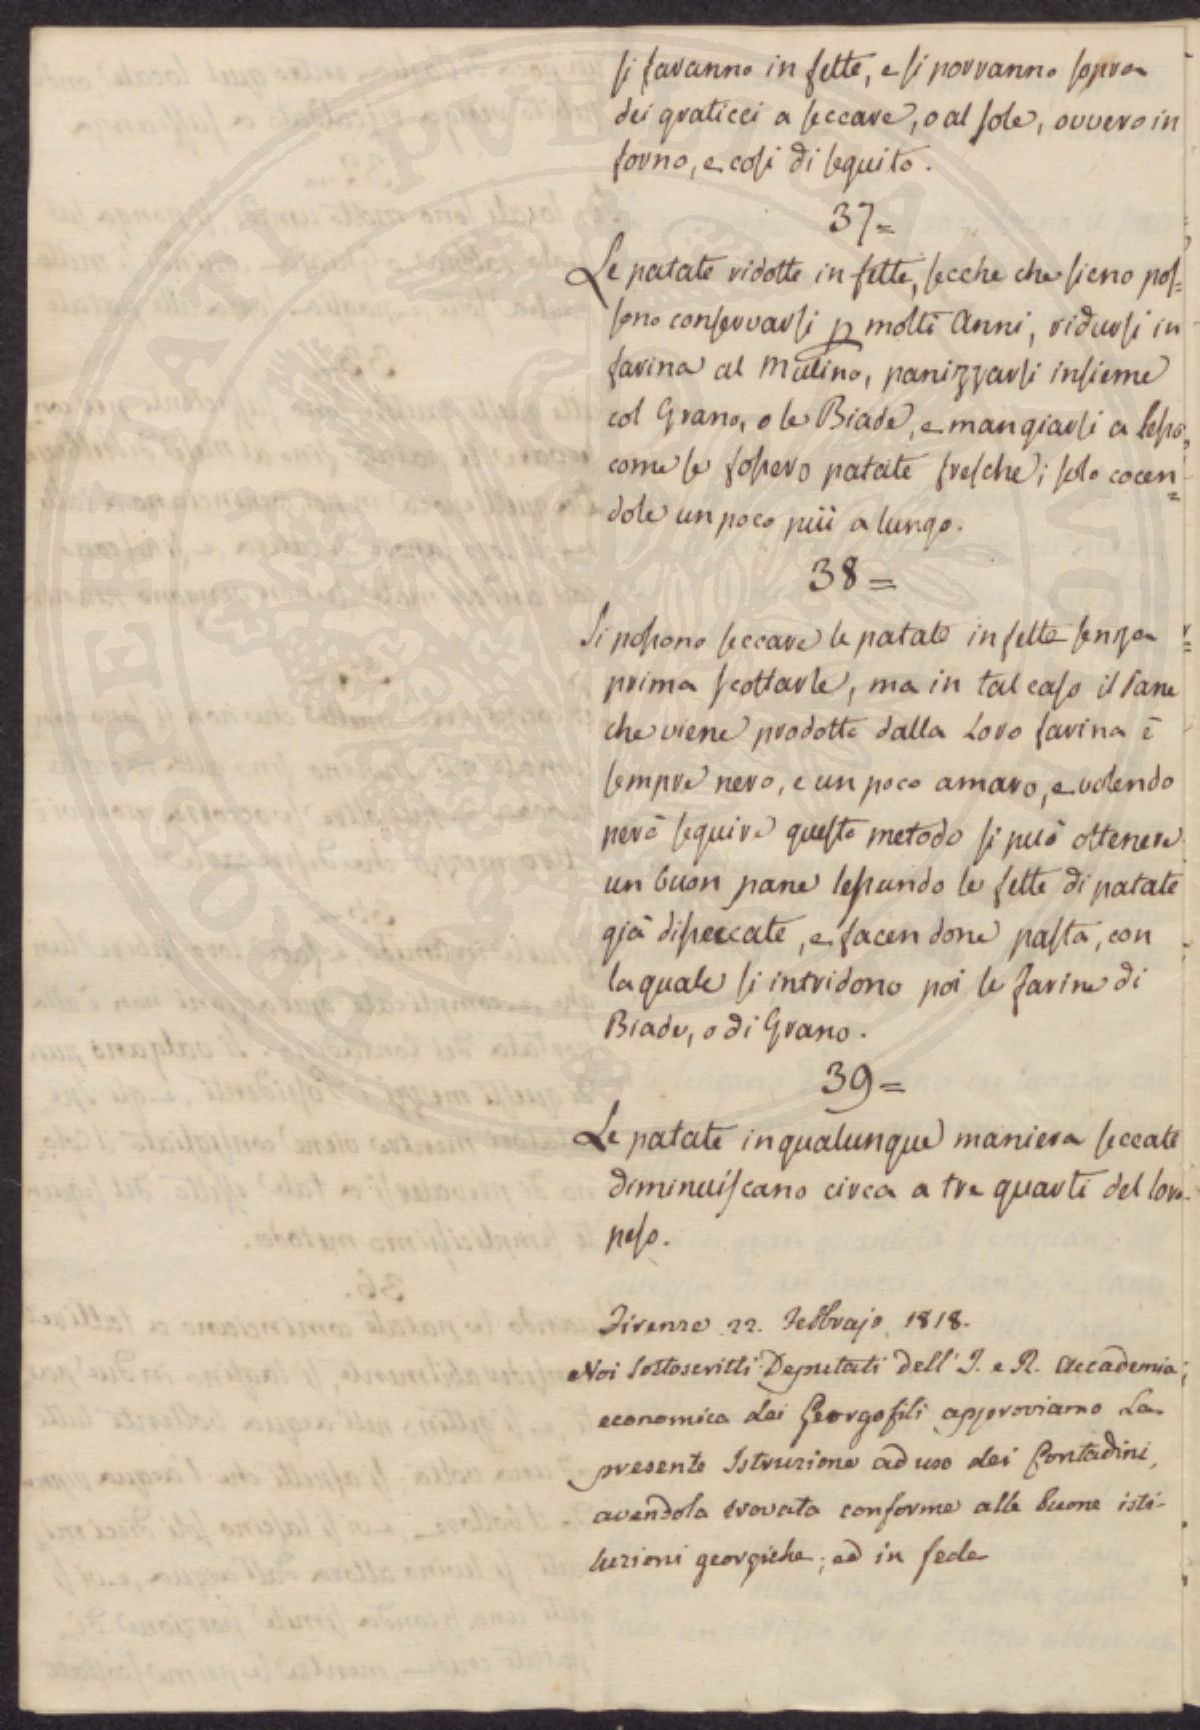 si faranno in fette, e si porranno sopra
dei graticci a seccare, o al sole, ovvero in
forno, e così di seguito.
37=
Le patate ridotte in fette, secche che sieno pos=
sono conservarsi p molti Anni, ridursi in
farina al Mulino, panizzarsi insieme
col Grano, o le Biade, e mangiarsi a lesso,
come se fossero patate fresche; solo cocen=
dole un poco più a lungo.
38=
Si possono seccare le patate in fette senza
prima scottarle, ma in tal caso il Pane
che viene prodotto dalla Loro farina è
sempre nero, e un poco amaro, e volendo
però seguire questo metodo si può ottenere
un buon pane lessando le fette di patate
già disseccate, e facendone pasta, con
la quale si intridono poi le farine di
Biade, o di Grano.
39=
Le patate in qualunque maniera seccate
diminuiscano circa a tre quarti del loro
peso.
Firenze 22. Febbrajo 1818.
Noi Sottoscritti Deputati dell' I. e R. Accademia
economica dei Georgofili approviamo La
presente Istruzione ad uso dei Contadini,
avendola trovata conforme alle buone isti-
tuzioni georgiche; ed in fede